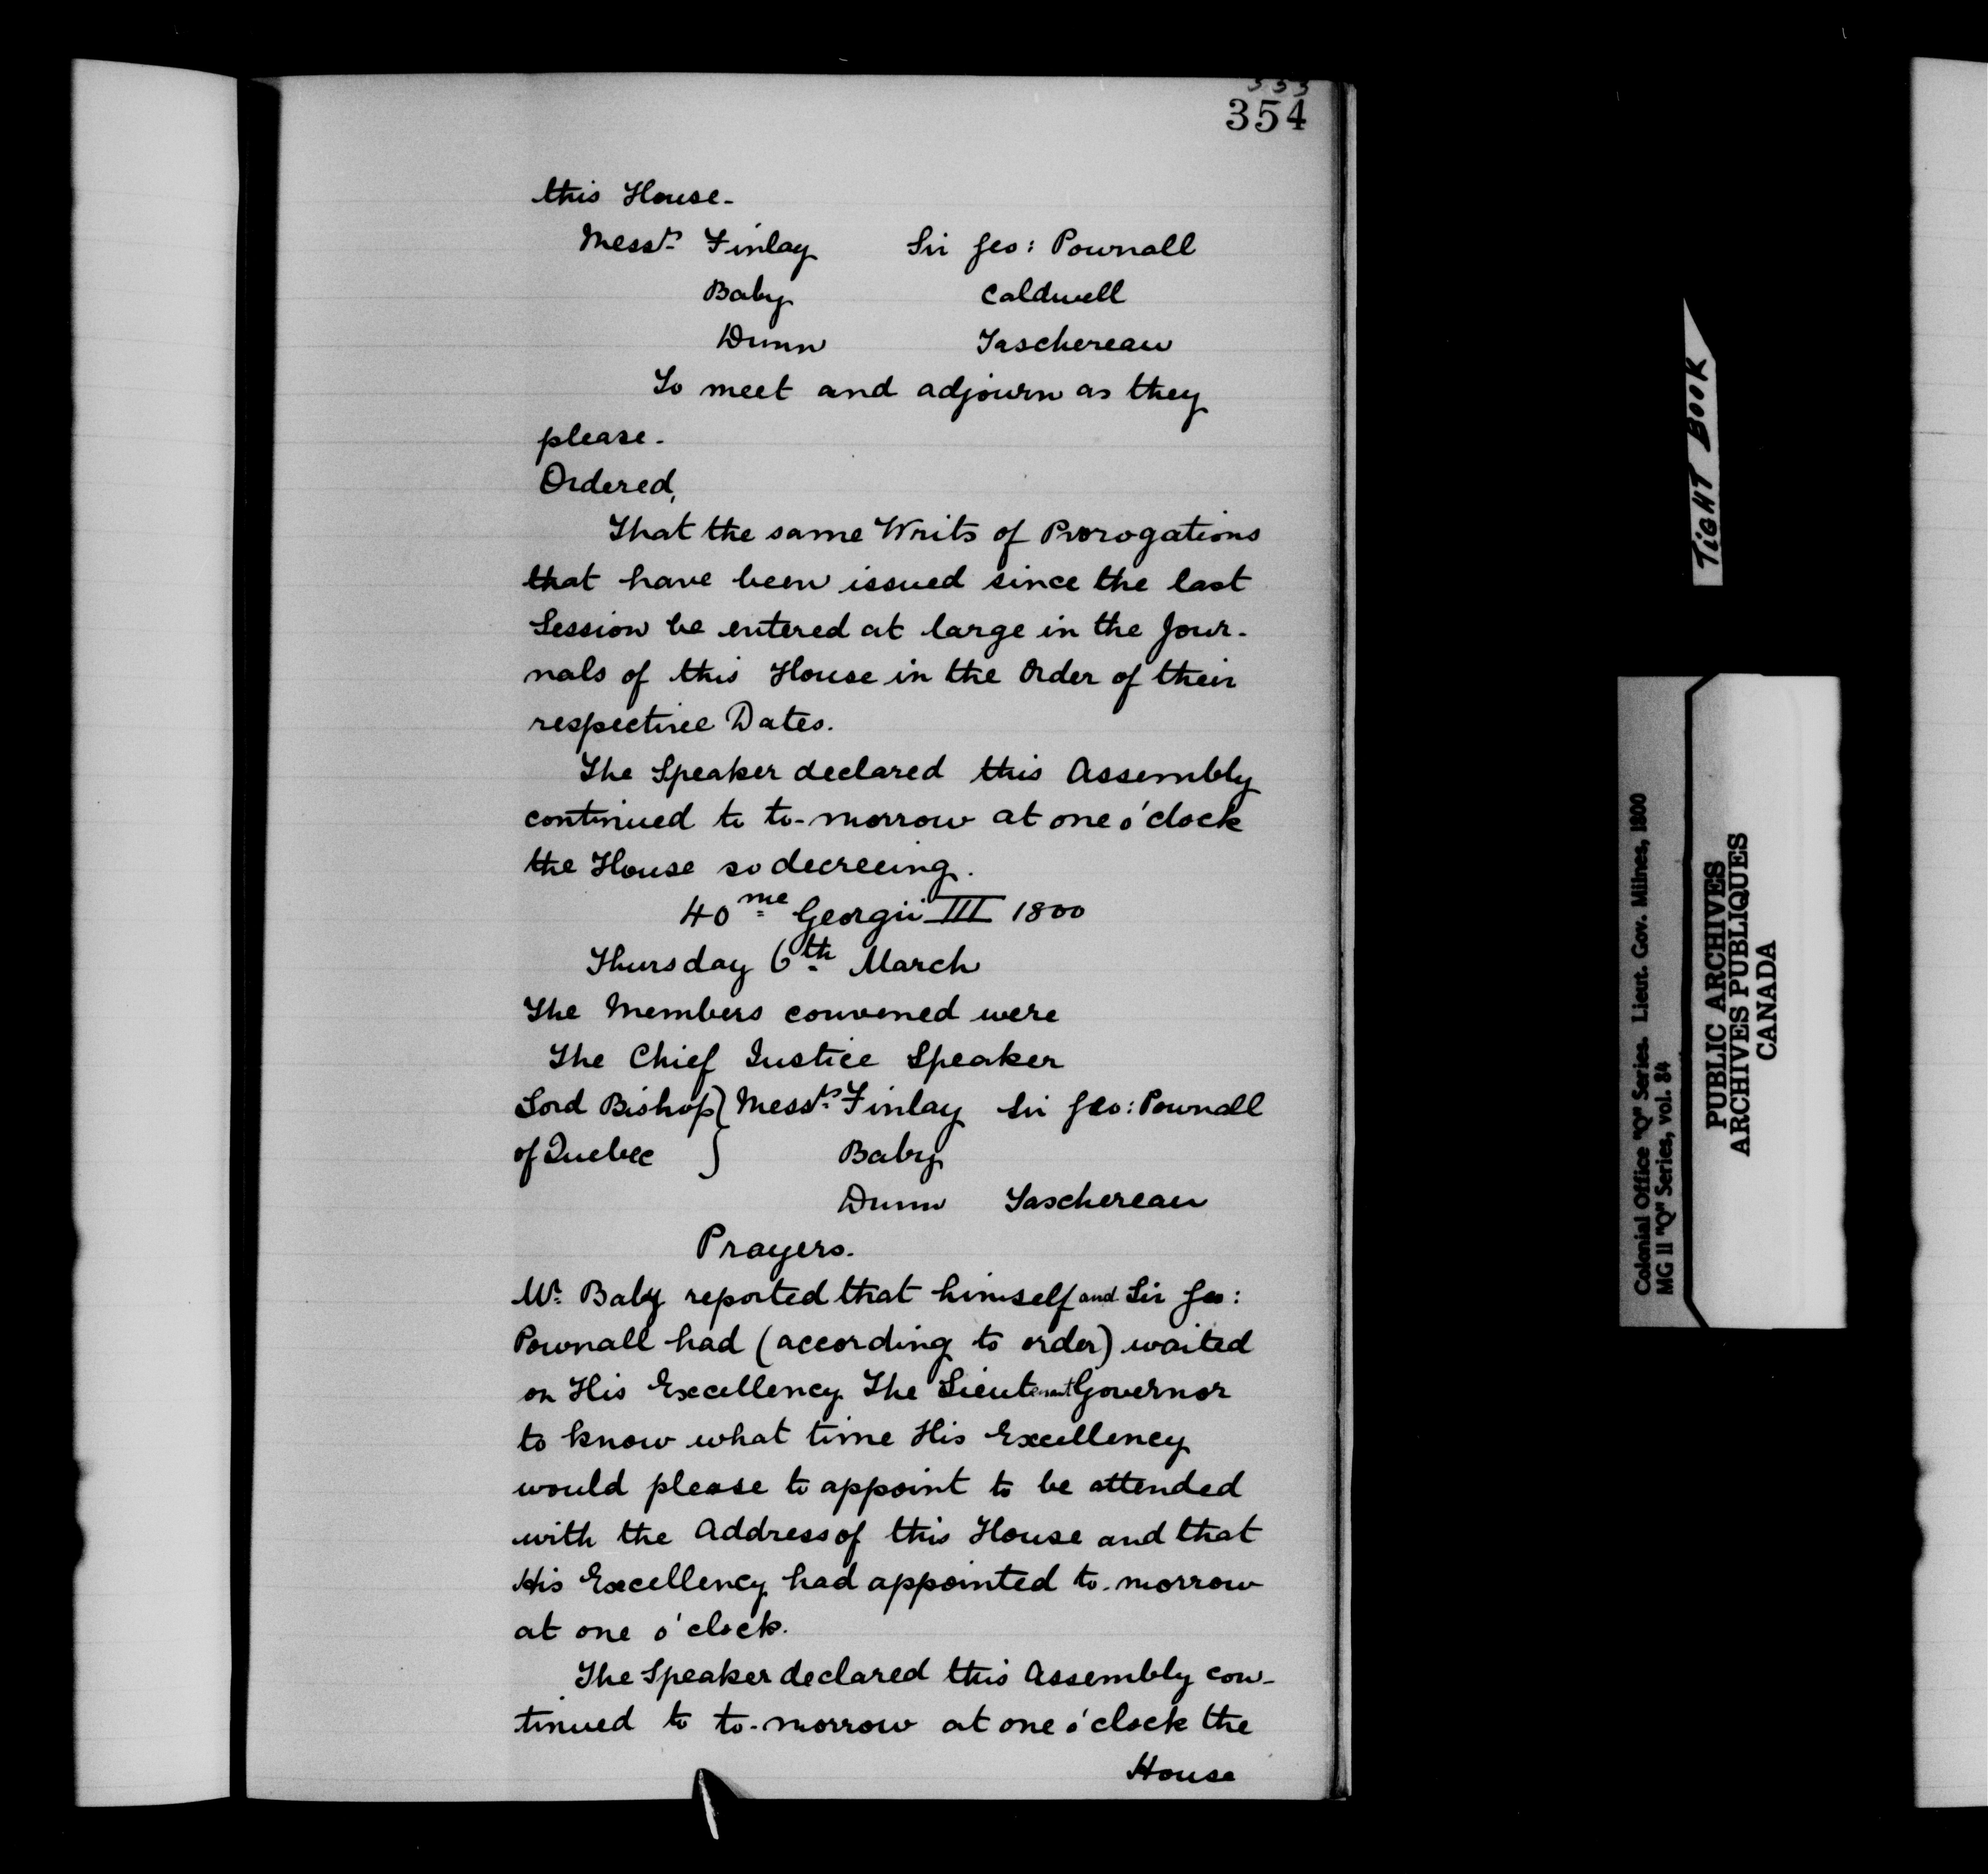 354
this House.
Mess.rs Finlay Sir Geo: Pownall
Baby Caldwell
Dunn Taschereau
To meet and adjourn as they
please.
Ordered,
That the same Writs of Prorogations
that have been issued since the last
Session be entered at large in the Jour-
nals of this House in the Order of their
respective Dates.
The Speaker declared this Assembly
continued to to-morrow at one o'clock
the House so decreeing.
40me Georgii III 1800
Thursday 6th March
The Members convened were
The Chief Justice Speaker
Lord Bishop } Mess.rs Finlay Sir Geo: Pownall
of Quebec } Baby
Dunn Taschereau
Prayers.
Mr. Baby reported that himself and Sir Geo:
Pownall had (according to order) waited
on His Excellency The Lieutenant Governor
to know what time His Excellency
would please to appoint to be attended
with the Address of this House and that
His Excellency had appointed to-morrow
at one o'clock.
The Speaker declared this Assembly con-
tinued to to-morrow at one o'clock the
House
TIGHT BOOK
Colonial Office "Q" Series. Lieut. Gov. Milnes, 1800
MG 11 "Q" Series, vol. 84
PUBLIC ARCHIVES
ARCHIVES PUBLIQUES
CANADA